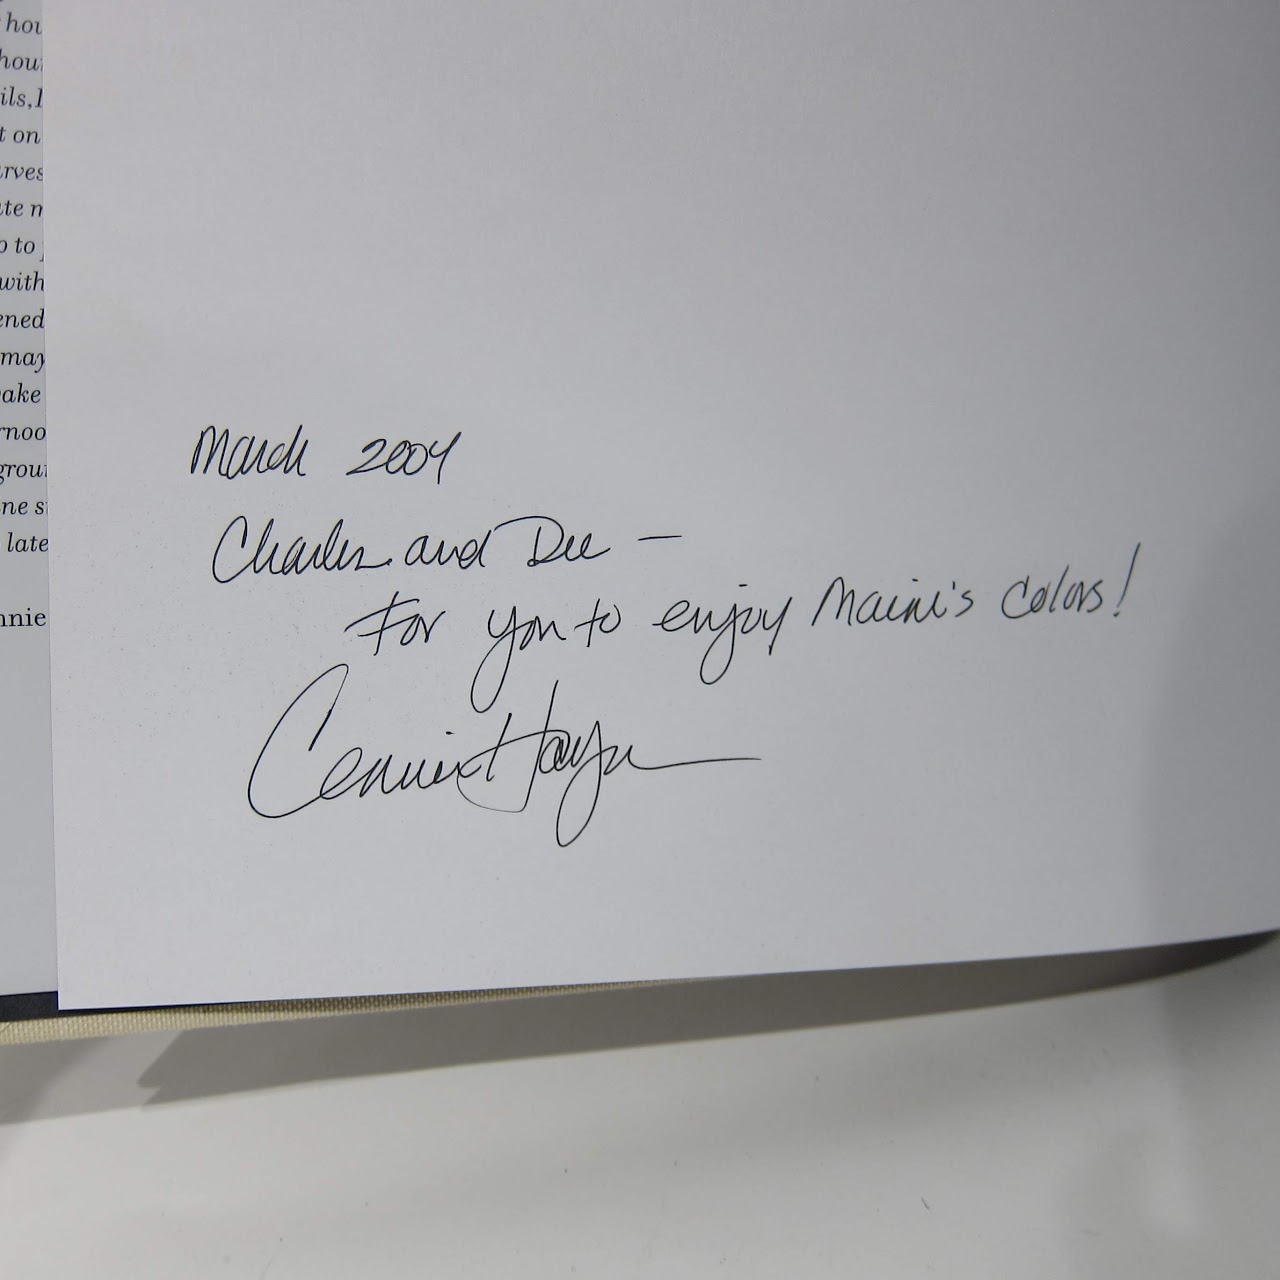 hou
hou
ils, I
t on
rves
te n
o to
with
ened
may
ake
rnoo
grou
ne s
late
nnie
March 2004
Charles and Dee —
For you to enjoy Maine's colors!
Connie Hayes